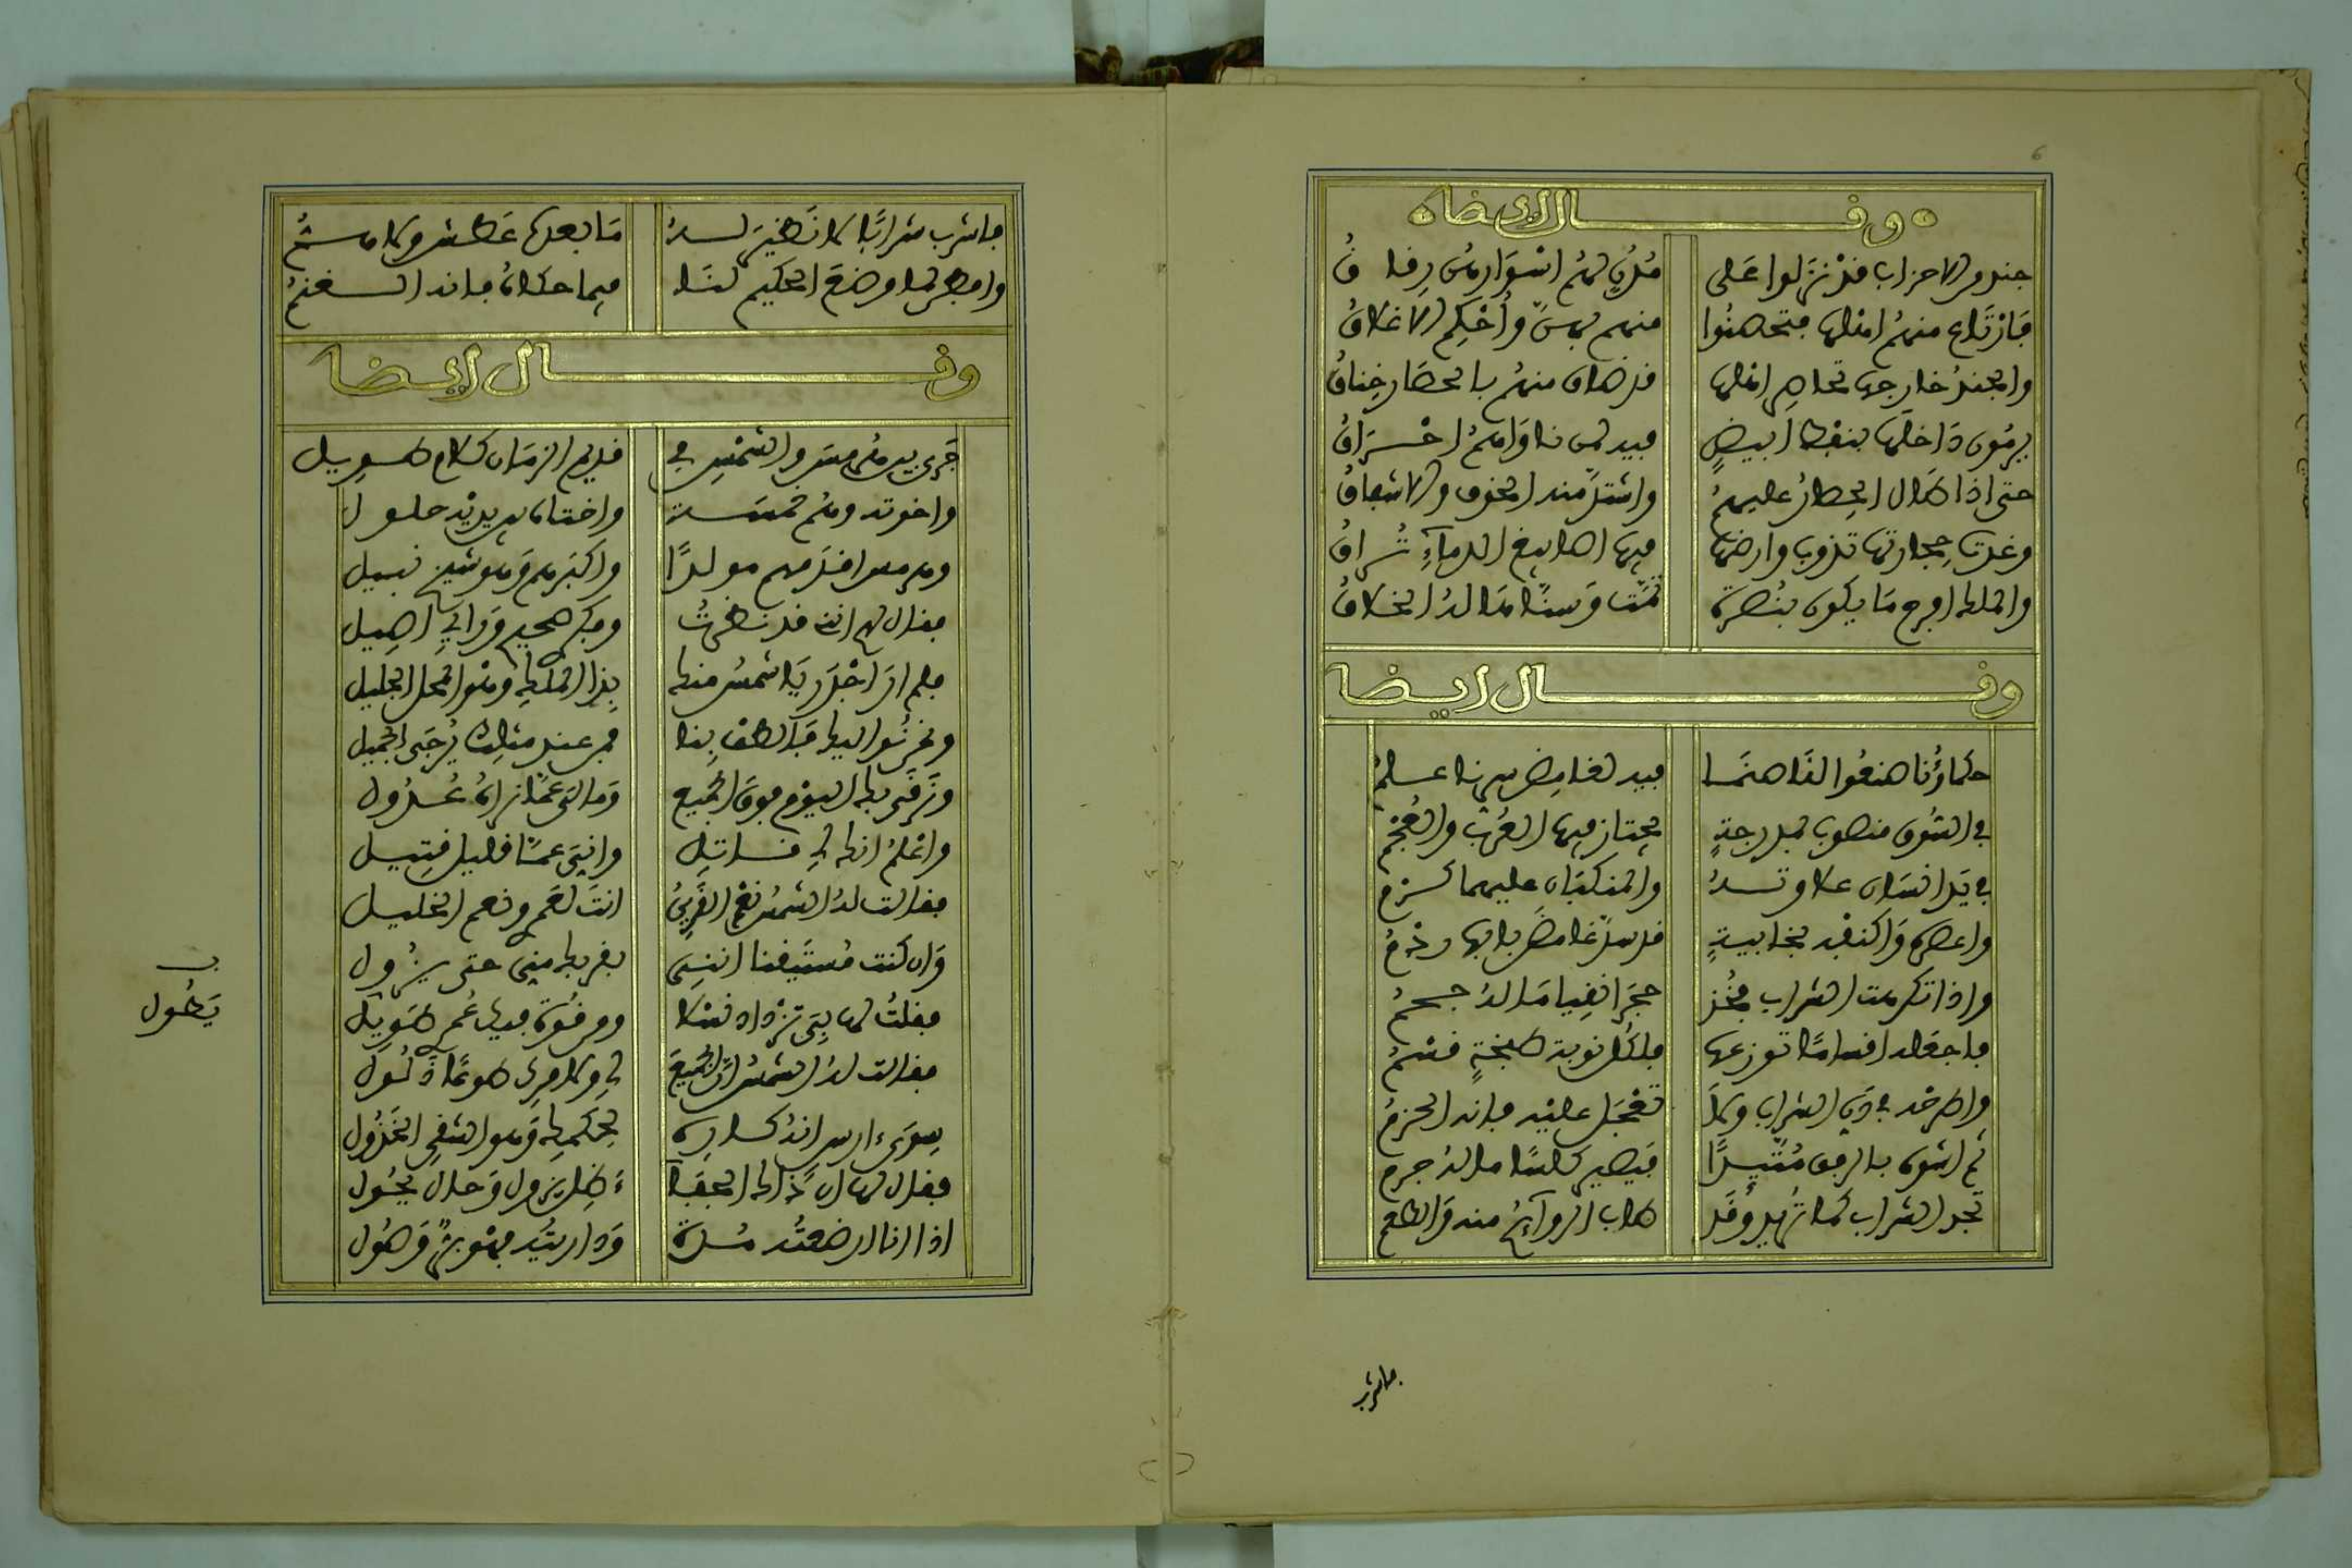 6
وقال ايضا
جند من الاحزاب قد نزلوا على مدن لهم اسوارهن رقاق
فارتاع منهم اهلها فتحصنوا منهم بهن واحكم الاغلاق
والجند خارجها تحاصر اهلها قد ضاق منهم بالحصار خناق
يرمون داخلها بنفط ابيض فيه لمن ناواهم احراق
حتى اذا طال الحصار عليهم واشتد منه الخوف والاشفاق
وغدت حجارتها تذوب وارضها فيها اصابيغ الدماء تراق
والملك افرح ما يكون بنصرة تمت وسنا ما له اخلاق
وقال ايضا
حكماؤنا صنعوا لنا صنما فيه لغامض سرنا علم
في السوق منصوب بمدرجة يجتاز فيها العرب والعجم
في يد انسان علاوته والمنكبان عليهما
واعصره واكنفه بخابية قد سد غامض بابها ردم
واذا تكرمت الشراب فخذ حجرا نقيا ما له جحم
فاجعله اقساما توزعها فلكل نوبة طبخة قسم
واطرحه في ذاك الشراب ولا تعجل عليه فانه الحزم
ثم اشوه بالرفق متئدا فيصير كلسا ما له جرم
تجد الشراب كما تريد وقد طاب الروائح منه والطعم
فاشرب
فاشرب شرابا لا نظير له ما بعدها عطش ولا
وافطن لما وضع الحكيم لنا فيما حكاه فانه الغنم
وقال ايضا
جرى بين هرمس والشمس في قديم الزمان كلام طويل
واخوته وهم خمسة واختاه بين يديه حلول
وهرمس اقدمهم مولدا واكبرهم وهو شيخ نبيل
فقال لهم انني قد نظرت وفكري صحيح ورايي اصيل
فلم ار اجدر يا شمس منك بذا الملك وهو المحل الجليل
ونحن نواليك فالطف بنا فمن عند مثلك يرجى الجميل
وترقى بك اليوم فوق الجميع وما لي عما نراه عدول
واعلم انك لي قاتل واني عما قليل قتيل
فقالت له الشمس نعم القريب انت لعمري ونعم الخليل
وان كنت مستيقنا انني بقربك مني حتى يزول
فقلت لها بي تزداد فضلا ومن قوة فيك عمر طويل
فقالت له الشمس ان الجميع لي ولامري طوعا ذلول
سوى ارس انه كاره لحكمك وهو الشقي الخذول
فقال لها ان ذاك الجفاء ظل يزول وحال يحول
اذا انا ارضعته مدة وداريته فهو وصول
يطول